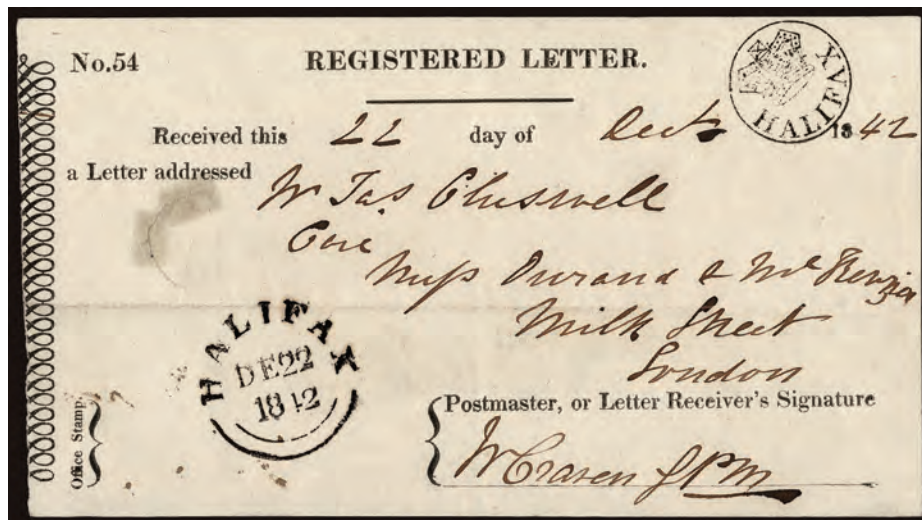 No.54 REGISTERED LETTER.
HALIFAX
Received this 22 day of Dec 1842
a Letter addressed
Jas
Care
Durand & McKenzie
Milk Street
London
HALIFAX
DE 22
1842
Office Stamp.
Postmaster, or Letter Receiver's Signature
W Craven PM